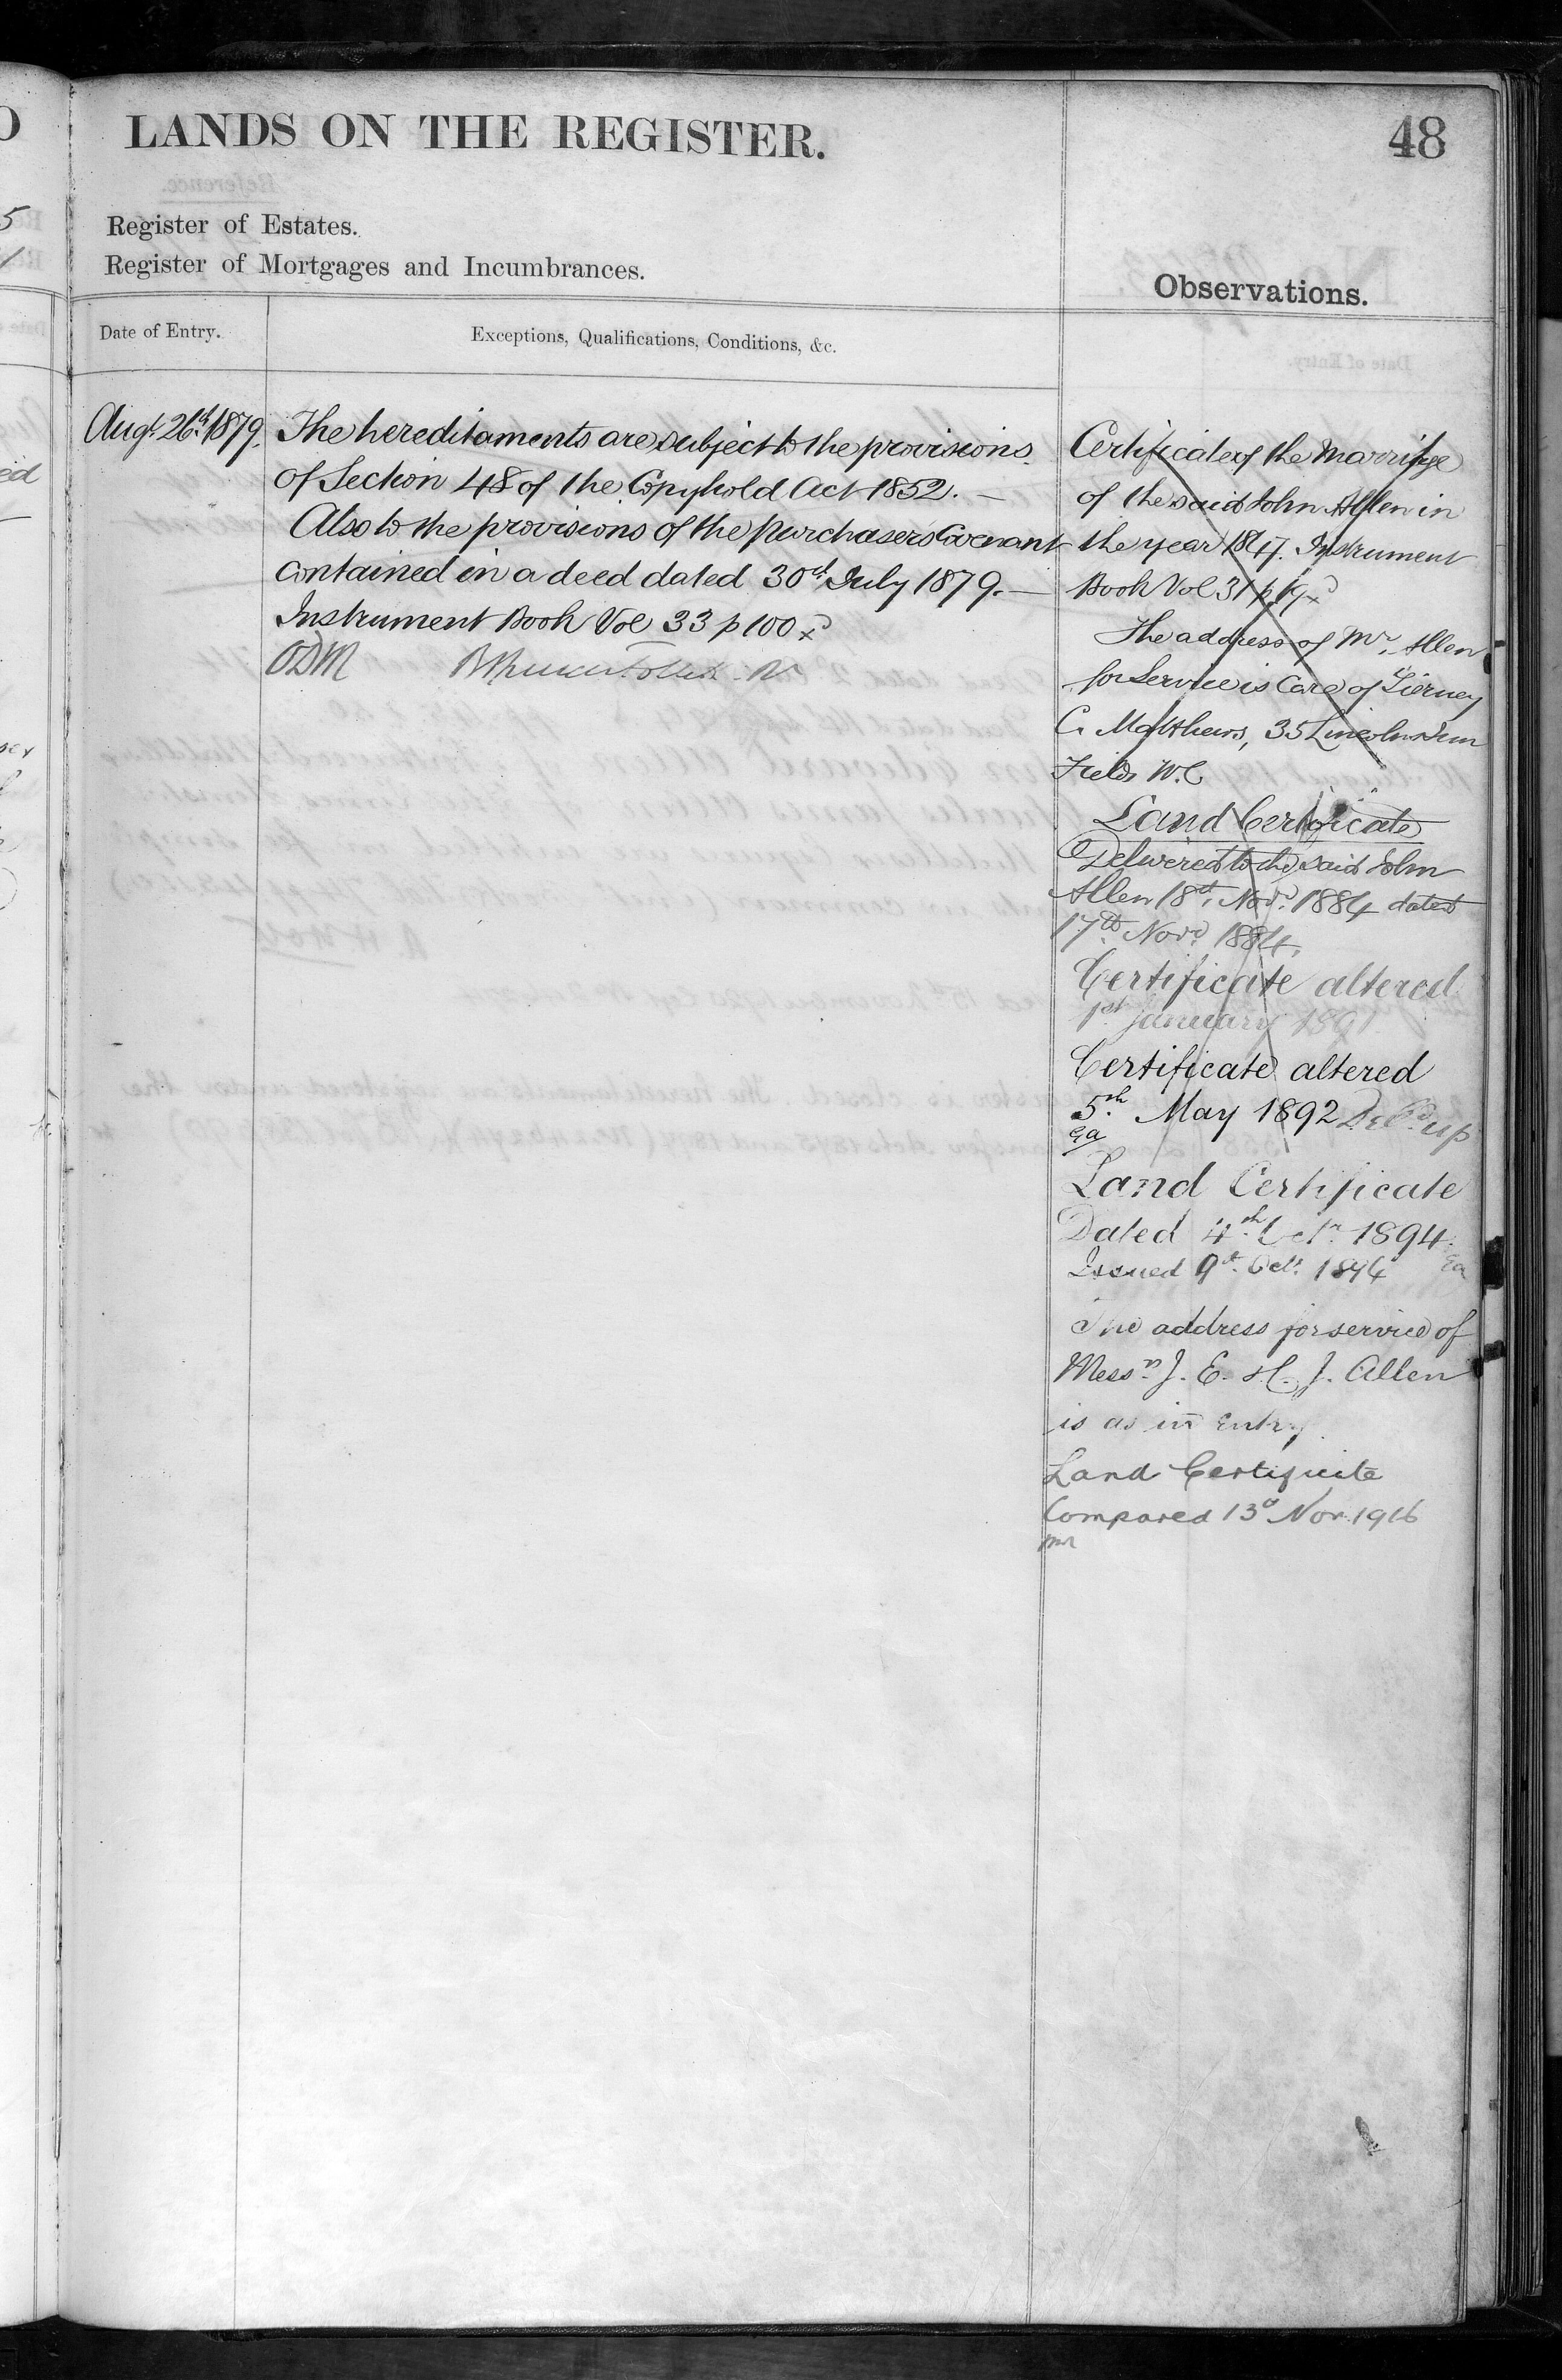 LANDS ON THE REGISTER.
48
Register of Estates.
Register of Mortgages and Incumbrances.
Observations.
Date of Entry.
Exceptions, Qualifications, Conditions, &c.
Augt. 26th. 1879.
The hereditaments are subject to the provisions
of Section 48 of the Copyhold Act 1852. —
Also to the provisions of the purchasers Covenant
contained in a deed dated 30th July 1879. —
Instrument Book Vol 33 p 100
ODM
Certificate of the Marriage
of the said John Allen in
the year 1847. Instrument
Book Vol 31 p
The address of Mr. Allen
for Service is Care of Tierney
C. Matthews, 35 Lincolns Inn
Fields W.C
Land Certificate
Delivered to the said John
Allen 18th. Novr. 1884 dated
17th Novr 1884.
Certificate altered
1st January 1891
Certificate altered
5th May 1892 Deld. up
Land Certificate
Dated 4th Octr. 1894.
Issued 9th. Octr. 1894
The address for service of
Messrs. J. E. H. J. Allen
is as in Entry.
Land Certificate
Compared 13d Nov. 1916